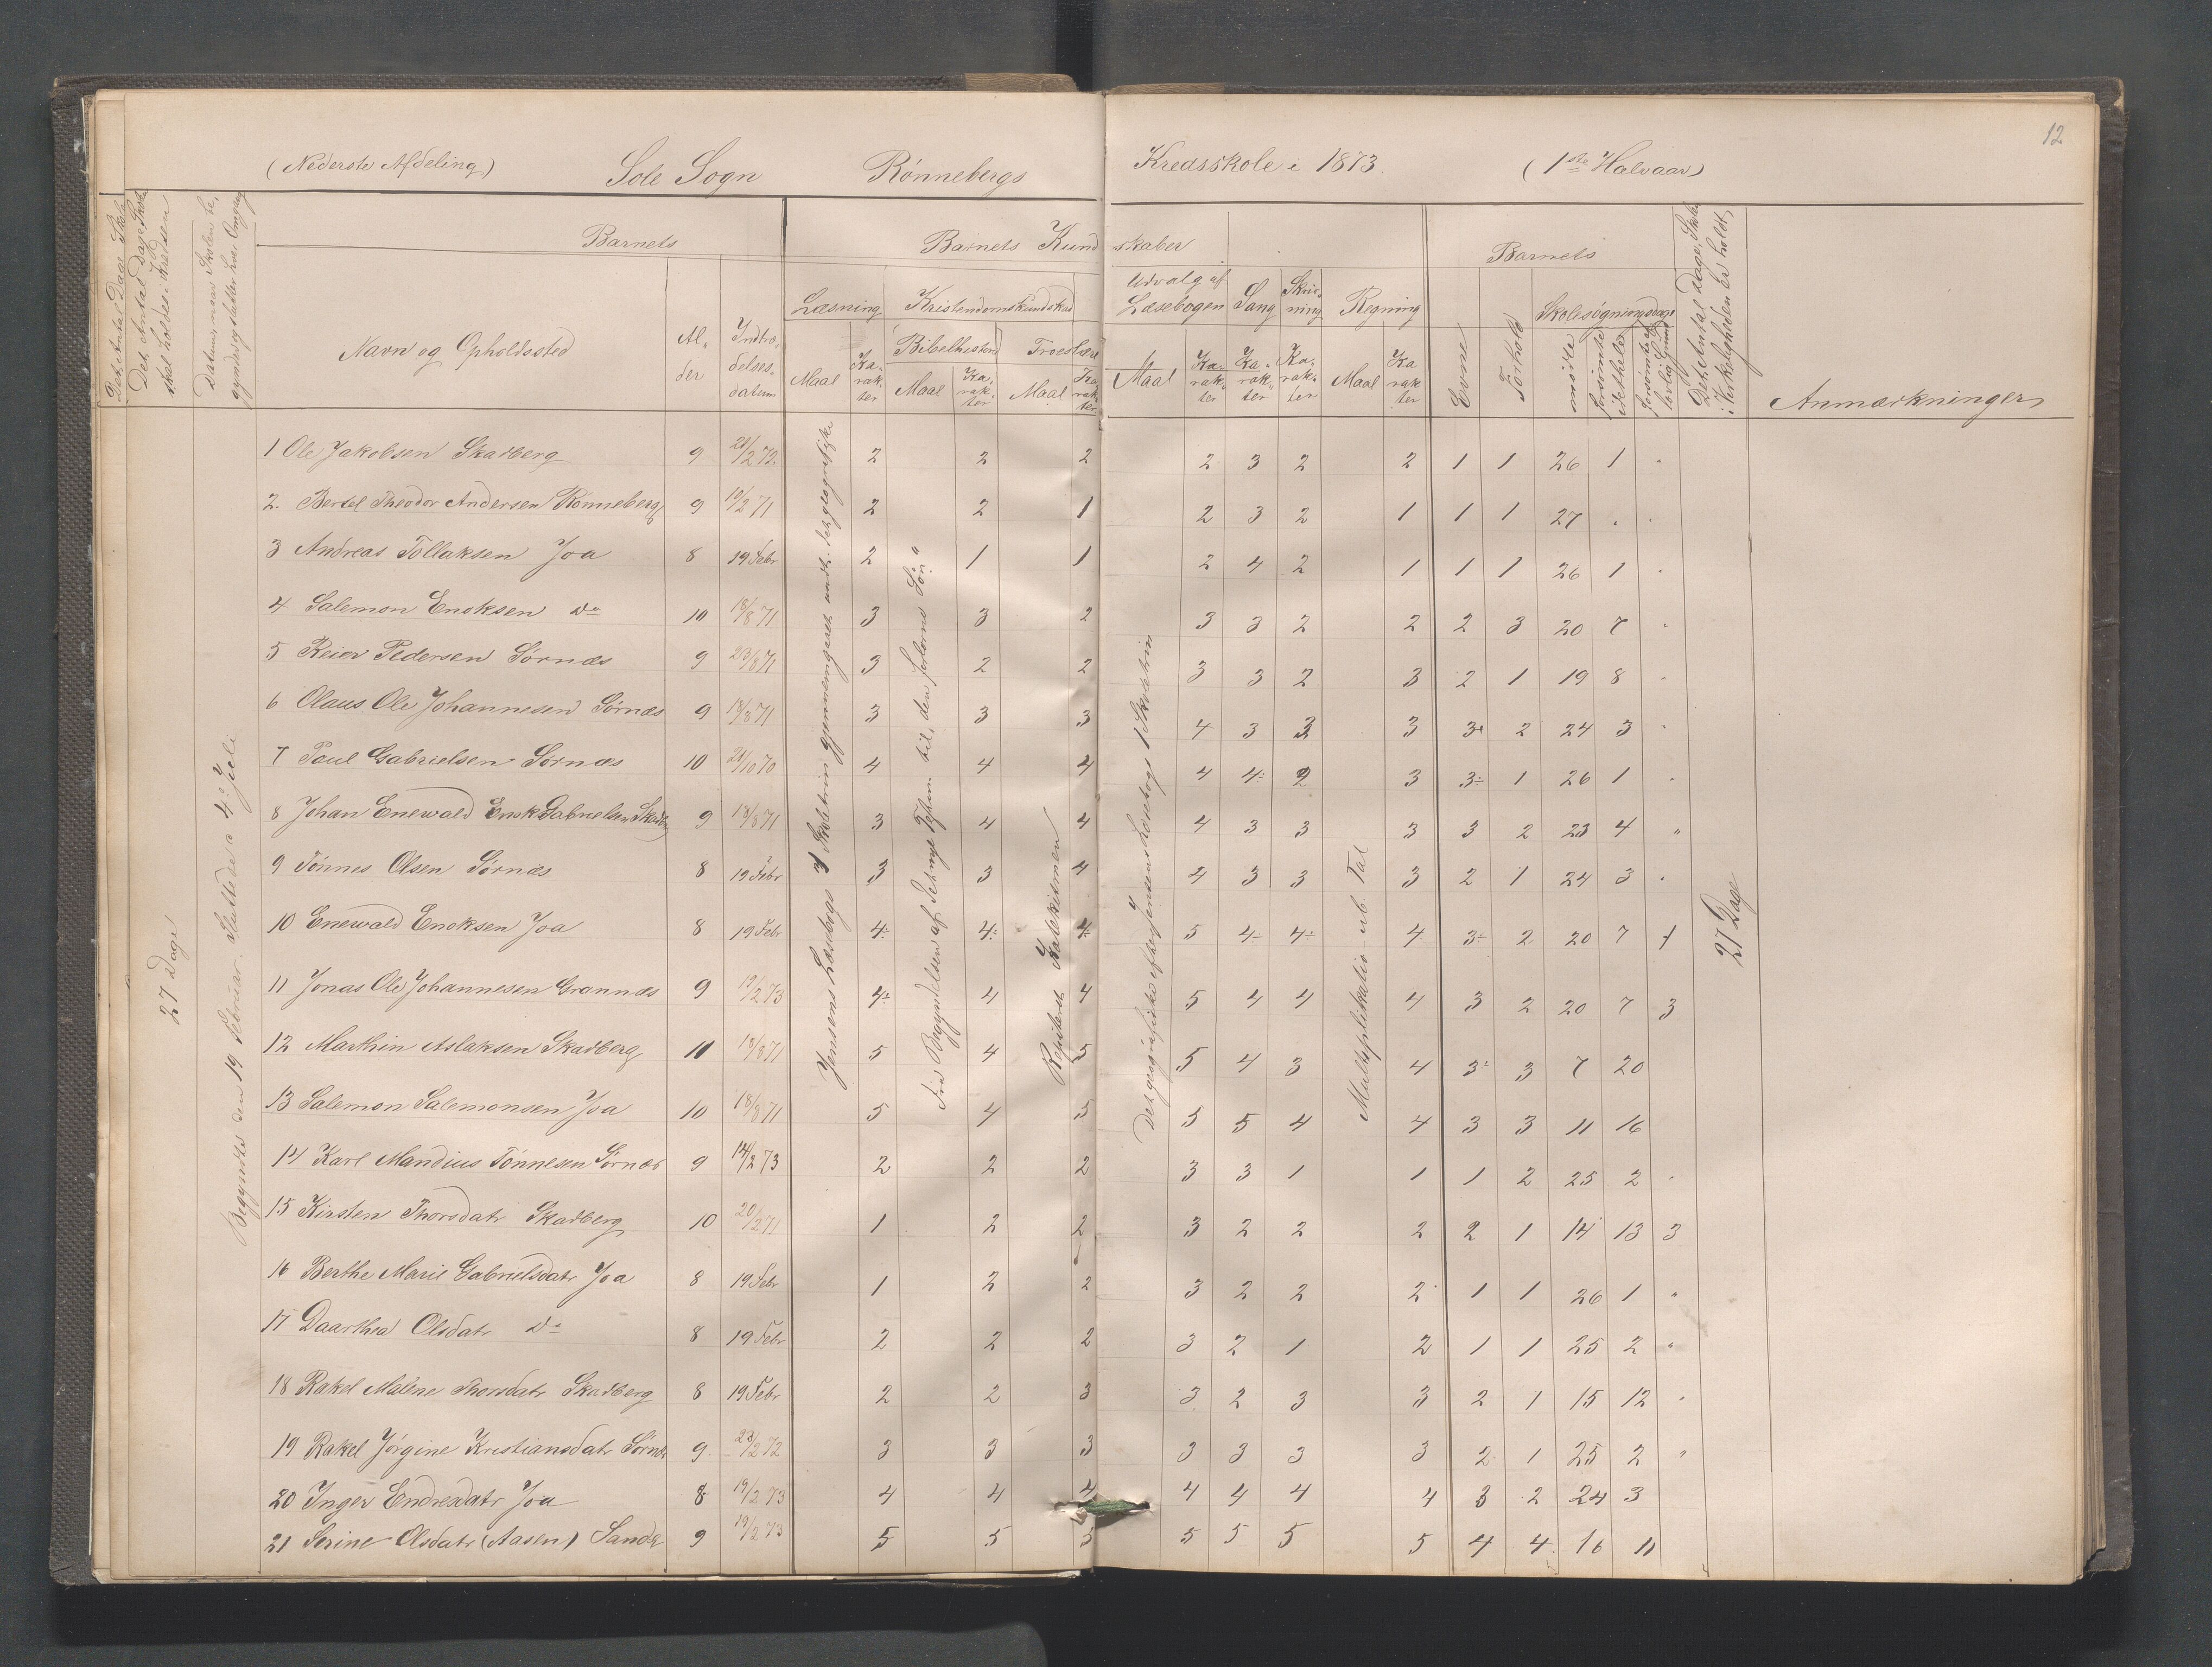 12
(Nederste Afdeling) Sole Sogn Rønnebergs Kredsskole i 1873 (1ste Halvaar)
Det Antal Dage Skole
skal holdes i Kredsen
Datum, naar Skolen be-
gynder og slutter hver Omgang
Barnets
Navn og Opholdssted
Al-
der
Indtræ-
delses-
datum
Barnets Kundskaber
Læsning
Maal
Ka-
rak-
ter
Kristendomskundskab
Bibelhistorie
Maal
Ka-
rak-
ter
Troeslære
Maal
Ka-
rak-
ter
Udvalg af
Læsebogen
Maal
Ka-
rak-
ter
Sang
Ka-
rak-
ter
Skriv-
ning
Ka-
rak-
ter
Regning
Maal
Ka
rak
ter
Barnets
Evne
Forhold
Skolesøgningsdage
mødte
forsømte
Det Antal Dage, Skole
i Virkeligheden er holdt,
Anmærkninger
27 Dage
Begyndte den 19 Februar. Sluttede 4. Juli
Jensens Læsebogs 1 Skoletrin gjennemgaaet undt. det geografiske
Fra Begyndelsen af det nye Testam. til "den forlorne Søn"
Repeteret Katekismen
Det geografiske efter Jensens Læsebogs 1 Skoletrin
Multiplikation ub. Tal
27 Dage
1 Ole Jakobsen Skadberg 9 2 2 2 2 3 2 2 1 1 26 1 .
2. Bertel Theodor Andersen Rønneberg 9 19/2 71 2 2 1 2 3 2 1 1 1 27 . .
3 Andreas Tollaksen Joa 8 19 Febr 2 1 1 2 4 2 1 1 1 26 1 .
4 Salemon Enoksen do 10 18/8 71 3 3 2 3 3 2 2 2 3 20 7 .
5 Reier Pedersen Sørnæs 9 23/8 71 3 2 2 3 3 2 3 2 1 19 8 .
6 Olaus Ole Johannesen Sørnæs 9 18/8 71 3 3 3 4 3 3 3 3 2 24 3 .
7 Paul Gabrielsen Sørnæs 10 21/10 70 4 4 4 4 4÷ 2 3 3÷ 1 26 1 .
8 Johan Enewald Enok Gabrielsen Skadberg 9 18/8 71 3 4 4 4 3 3 3 3 2 23 4 "
9 Tønnes Olsen Sørnæs 8 19 Febr 3 3 4 4 3 3 3 2 1 24 3 .
10 Enewald Enoksen Joa 8 19 Febr 4÷ 4÷ 4÷ 5 4÷ 4÷ 4 3÷ 2 20 7 1
11 Jonas Ole Johannesen Grannæs 9 19/2 73 4÷ 4 4 5 4 4 4 3 2 20 7 3
12 Marthin Aslaksen Skadberg 11 18/8 71 5 4 5 5 4 3 4 3÷ 3 7 20
13 Salemon Salemonsen Joa 10 18/8 71 5 4 5 5 5 4 4 3 3 11 16
14 Karl Mandius Tønnesen Sørnæs 9 14/2 73 2 2 2 3 3 1 1 1 2 25 2 .
15 Kirsten Thorsdatr Skadberg 10 20/2 71 1 2 2 3 2 2 2 2 1 14 13 3
16 Berthe Marie Gabrielsdatr Joa 8 19 Febr 1 2 2 3 2 2 2 1 1 26 1 "
17 Daarthea Olsdatr do 8 19 Febr 2 2 2 3 2 1 2 1 1 25 2 "
18 Rakel Malene Thorsdatr Skadberg 8 19 Febr 2 2 3 3 2 3 3 2 1 15 12 .
19 Rakel Jørgine Kristiansdatr Sørnæs 9 23/2 72 3 3 3 3 3 3 3 2 1 25 2 "
20 Inger Endresdatr Joa 8 19/2 73 4 4 4 4 4 4 4 3 2 24 3
21 Serine Olsdatr (Aasen) Sande 9 19/2 73 5 5 5 5 5 5 5 4 4 16 11